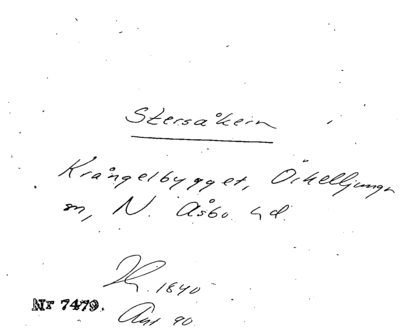 Stersåkern
Krångelbygget, Örkelljunga
sn, N. Åsbo hd.
1840
Nr 7479.
90